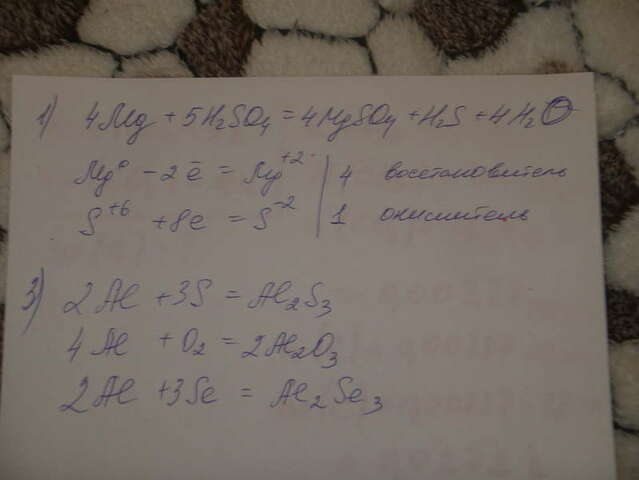 1) 4Mg + 5H₂SO₄ = 4MgSO₄ + H₂S + 4H₂O
Mg⁰ - 2ē = Mg⁺² | 4 восстановитель
S⁺⁶ + 8e = S⁻² | 1 окислитель
3) 2Al + 3S = Al₂S₃
4Al + O₂ = 2Al₂O₃
2Al + 3Se = Al₂Se₃